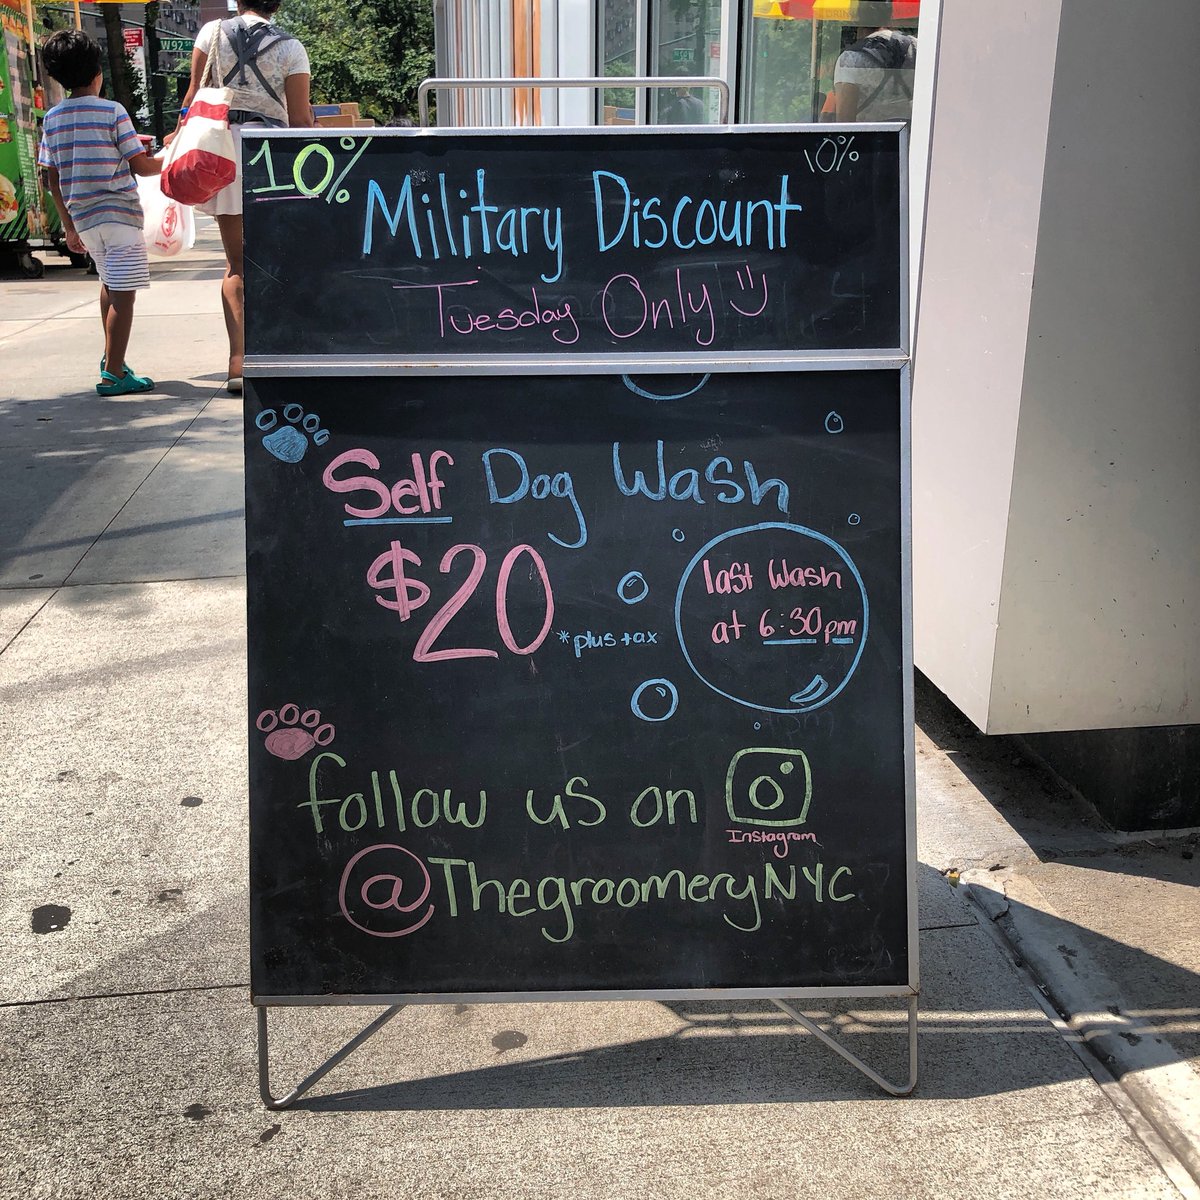 W 92 ST
10%
10%
Military Discount
Tuesday Only
Self Dog Wash
$20 *plus tax
last Wash
at 6:30pm
follow us on
Instagram
@ThegroomeryNYC